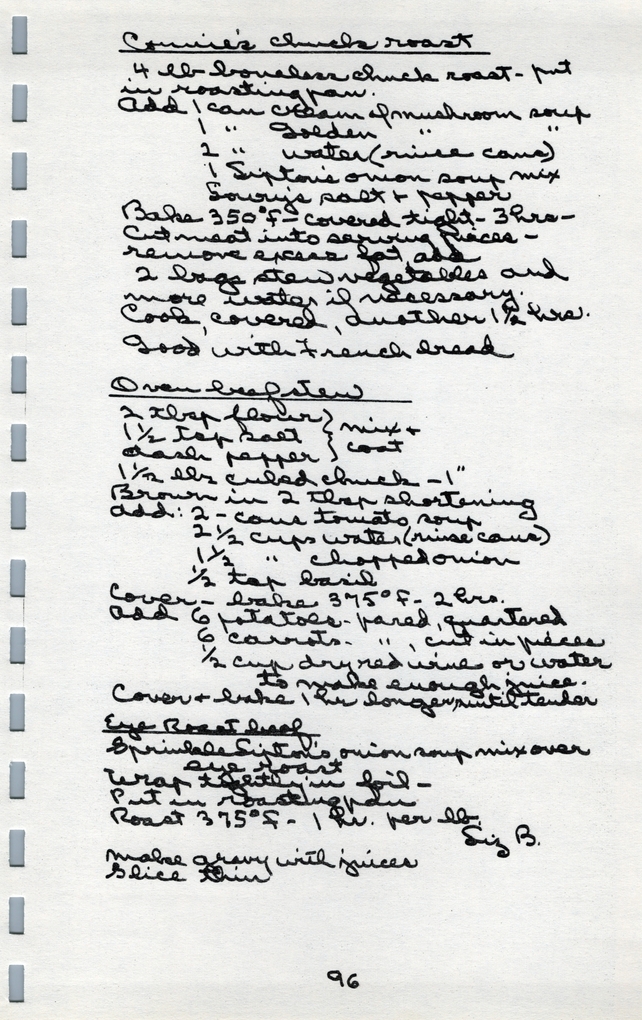 Connie's chuck roast
4 lb boneless chuck roast - put
in roasting pan.
Add 1 can cream of mushroom soup
1 " Golden " "
2 " water (rinse cans)
1 Lipton's onion soup mix
Lowry's salt + pepper
Bake 350°F - covered tight - 3 hrs -
Cut meat into serving pieces -
remove excess fat, add
2 bags stew vegetables and
more water if necessary.
Cook, covered, another 1 1/2 hrs.
Good with French bread
Oven beef stew
2 tbsp flour } mix +
1 1/2 tsp salt } coat
dash pepper }
1 1/2 lbs cubed chuck - 1"
Brown in 2 tbsp shortening
add: 2 - cans tomato soup
2 1/2 cups water (rinse cans)
1 1/2 " chopped onion
1/2 tsp basil
Cover - bake 375°F - 2 hrs.
add 6 potatoes - pared, quartered
6 carrots - ", cut in pieces
1/2 cup dry red wine or water
to make enough juice.
Cover + bake 1 hr longer, until tender
Eye Roast beef
Sprinkle Lipton's onion soup mix over
eye roast
Wrap tightly in foil -
Put in roasting pan
Roast 375°F - 1 hr. per lb.
Liz B.
make gravy with juices
Slice thin
96